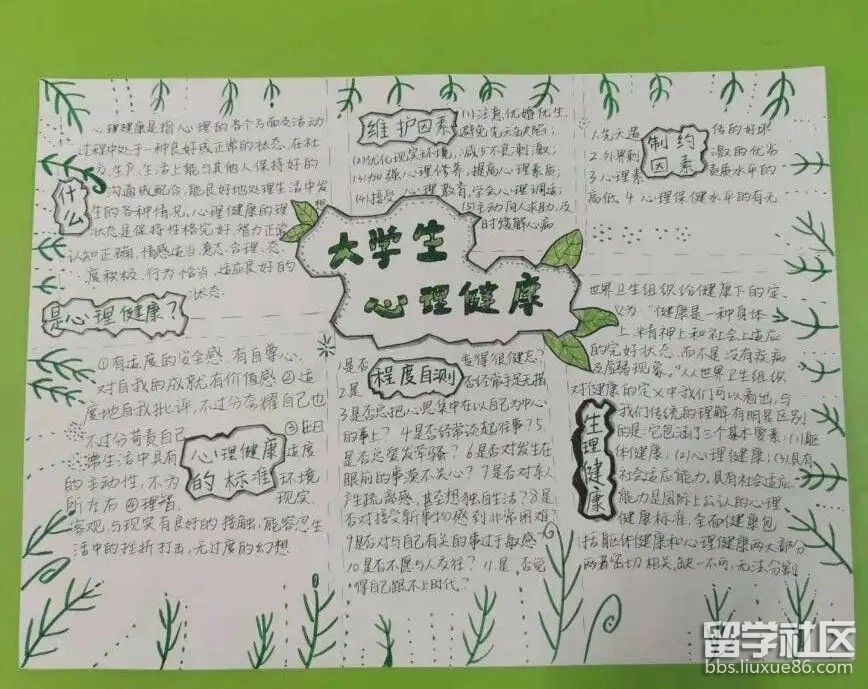 大学生
心理健康
什么
是心理健康？
心理健康是指心理的各个方面及活动
过程中处于一种良好或正常的状态。在社
交、生产、生活上能与其他人保持好的
沟通或配合，能良好地处理生活中发
生的各种情况。心理健康的理
状态是保持性格完好、智力正常
认知正确、情感适当、意志合理、态
度积极、行为恰当、适应良好的
状态.
维护因素
(1)注意优婚优生，
避免先天缺陷；
(2)优化现实环境，减少不良刺激；
(3)加强心理修养，提高心理素质；
(4)接受心理教育，学会心理调适；
(5)主动向人求助，及
时缓解心病
制约
因素
1.先天遗传的好坏
2.外界刺激的优劣
3.心理素质水平的
高低 4.心理保健水平的有无
心理健康
的标准
①有适度的安全感，有自尊心，
对自我的成就有价值感 ②适
度地自我批评，不过分夸耀自己也
不过分苛责自己
③在日
常生活中具有适度
的主动性，不为环境
所左右 ④理智，现实，
客观，与现实有良好的接触，能容忍生
活中的挫折打击，无过度的幻想
程度自测
1.是否变得很健忘？
2.是否经常手足无措
3.是否总把心思集中在以自己为中心
的事上？ 4.是否经常谈起往事？5.
是否总爱发牢骚？ 6.是否对发生在
眼前的事漠不关心？ 7.是否对亲人
产生疏离感，甚至想独自生活？8.是
否对接受新事物感到非常困难？
9.是否对与自己有关的事过于敏感
10.是否不愿与人交往？ 11.是否觉
得自己跟不上时代？
生理健康
世界卫生组织给健康下的定
义为：“健康是一种身体
上、精神上和社会上适应
的完好状态，而不是没有疾病
及虚弱现象。”从世界卫生组织
对健康的定义中我们可以看出，与
我们传统的理解有明显区别
的是，它包涵了三个基本要素：(1)躯
体健康；(2)心理健康；(3)具有
社会适应能力。具有社会适应
能力是国际上公认的心理
健康标准，全面健康包
括躯体健康和心理健康两大部分
两者密切相关，缺一不可，无法分割
留学社区
bbs.liuxue86.com